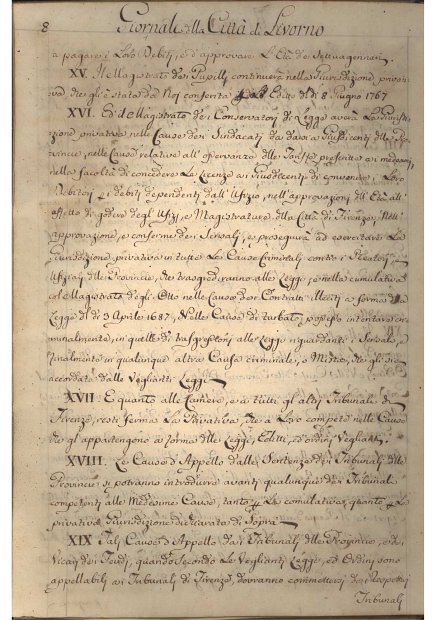 8 Giornali della Città di Livorno
a pagare i Loro Debiti, ed approvare L'Età dei Settuagenari.
XV. Il Magistrato dei Pupilli continuerà nella Giurisdizione privati
va che gli è stata da Noi conferita Editto del dì 8. Giugno 1767
XVI. Ed il Magistrato dei Conservatori di Legge averà la Giurisdi
zione privativa nelle Cause dei Sindacati da darsi a Giusdicenti delle Pro
vincie, nelle Cause relative all'osservanza delle Tariffe prescritte ai medesimi,
nelle facoltà di concedere La Licenza ai Giusdicenti di convenire i Loro
Debitori i debiti dependenti dall'Ufizio, nell'approvazioni dell'Età all'
effetto di godere degl'Ufizj, e Magistrature della Città di Firenze, Nell'
approvazione, e conferme dei Sensali, e proseguirà ad esercitare La
Giurisdizione privativa in tutte Le Cause Criminali contro i Rettori,
Ufiziali delle Provincie, che trasgrediranno alle Leggi, e nella cumulativa
col Magistrato degl'Otto nelle Cause dei Contratti illeciti a forma della
Legge del dì 3 Aprile 1687, Nelle Cause di turbato possesso intentate cri
minalmente, in quelle di trasgressioni alle Leggi riguardanti i Sensali, e
finalmente in qualunque altra Causa criminale, o Mista, che gli sia
accordata dalle Veglianti Leggi.
XVII. E quanto alle Camere, e a tutti gl'altri Tribunali di
Firenze, resti ferma La Privativa, che a Loro compete nelle Cause
che gl'appartengono a forma delle Leggi, Editti, ed ordini Veglianti.
XVIII. Le Cause d'Appello dalle Sentenze dei Tribunali delle
Provincie si potranno introdurre avanti qualunque dei Tribunali
competenti alle Medesime Cause, tanto La Comulativa, quanto La
privativa Giurisdizione dichiarata di Sopra
XIX Tali Cause d'Appello dai Tribunali delle Provincie, e dei
Vicarj dei Feudi, quando Secondo Le Veglianti Leggi, ed Ordini sono
appellabili ai Tribunali di Firenze, dovranno commettersi dei Respettivi
Tribunali